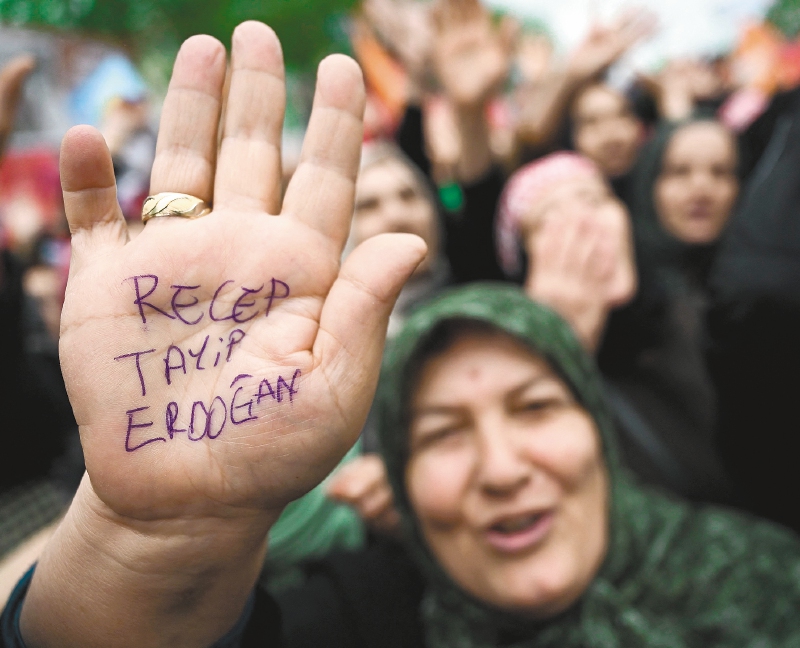 RECEP
TAYiP
ERDOĞAN